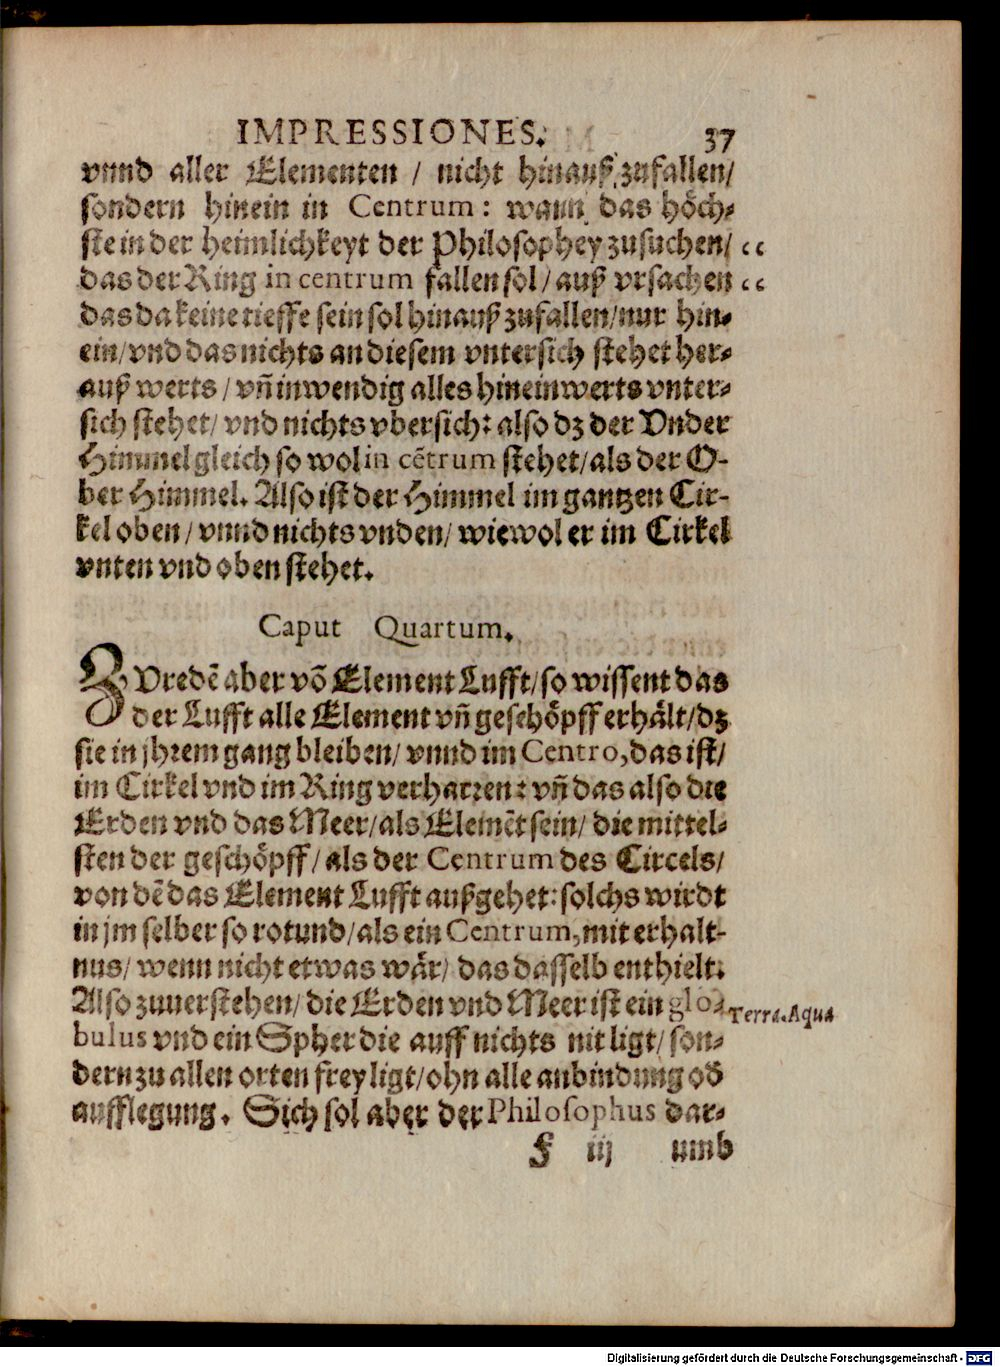 IMPRESSIONES. 37
vnnd aller Elementen / nicht hinauß zufallen/
sondern hinein in Centrum: wann das höch⸗
ste in der heimlichkeyt der Philosophey zusuchen/ cc
das der Ring in centrum fallen sol/ auß vrsachen cc
das da keine tieffe sein sol hinauß zufallen/nur hin⸗
ein/vnd das nichts an diesem vntersich stehet her⸗
auß werts / vñ inwendig alles hineinwerts vnter⸗
sich stehet/ vnd nichts vbersich: also dz der Vnder
Himmel gleich so wol in cẽtrum stehet/als der O-
ber Himmel. Also ist der Himmel im gantzen Cir-
kel oben / vnnd nichts vnden/ wiewol er im Cirkel
vnten vnd oben stehet.
Caput Quartum.
ZVredẽ aber võ Element Lufft/so wissent das
der Lufft alle Element vñ geschöpff erhält/dz
sie in jhrem gang bleiben/ vnnd im Centro, das ist/
im Cirkel vnd im Ring verharren: vñ das also die
Erden vnd das Meer/als Elemẽt sein/ die mittel⸗
sten der geschöpff/als der Centrum des Circels/
von dẽ das Element Lufft außgehet: solchs wirdt
in jm selber so rotund/als ein Centrum, mit erhalt-
nus/ wenn nicht etwas wär/ das dasselb enthielt.
Also zuuerstehen/ die Erden vnd Meer ist ein glo⸗ Terra. Aqua
bulus vnd ein Spher die auff nichts nit ligt/ son⸗
dern zu allen orten frey ligt/ohn alle anbindung oď
aufflegung. Sich sol aber der Philosophus dar⸗
F iij umb
Digitalisierung gefördert durch die Deutsche Forschungsgemeinschaft - DFG